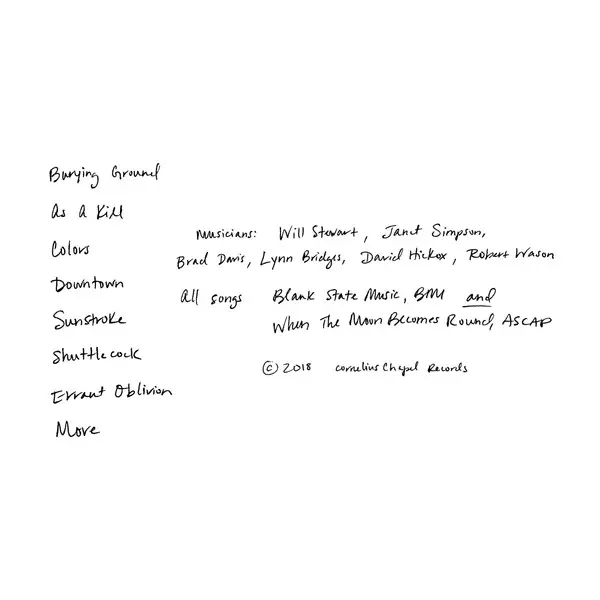 Burying Ground
As A Kill
Colors
Downtown
Sunstroke
Shuttlecock
Errant Oblivion
More
Musicians: Will Stewart, Janet Simpson,
Brad Davis, Lynn Bridges, David Hickox, Robert Wason
All songs Blank State Music, BMI and
When The Moon Becomes Round, ASCAP
© 2018 Cornelius Chapel Records